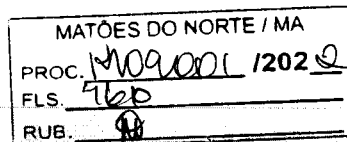 MATÕES DO NORTE / MA
PROC. 1409001 /2022
FLS. 760
RUB.